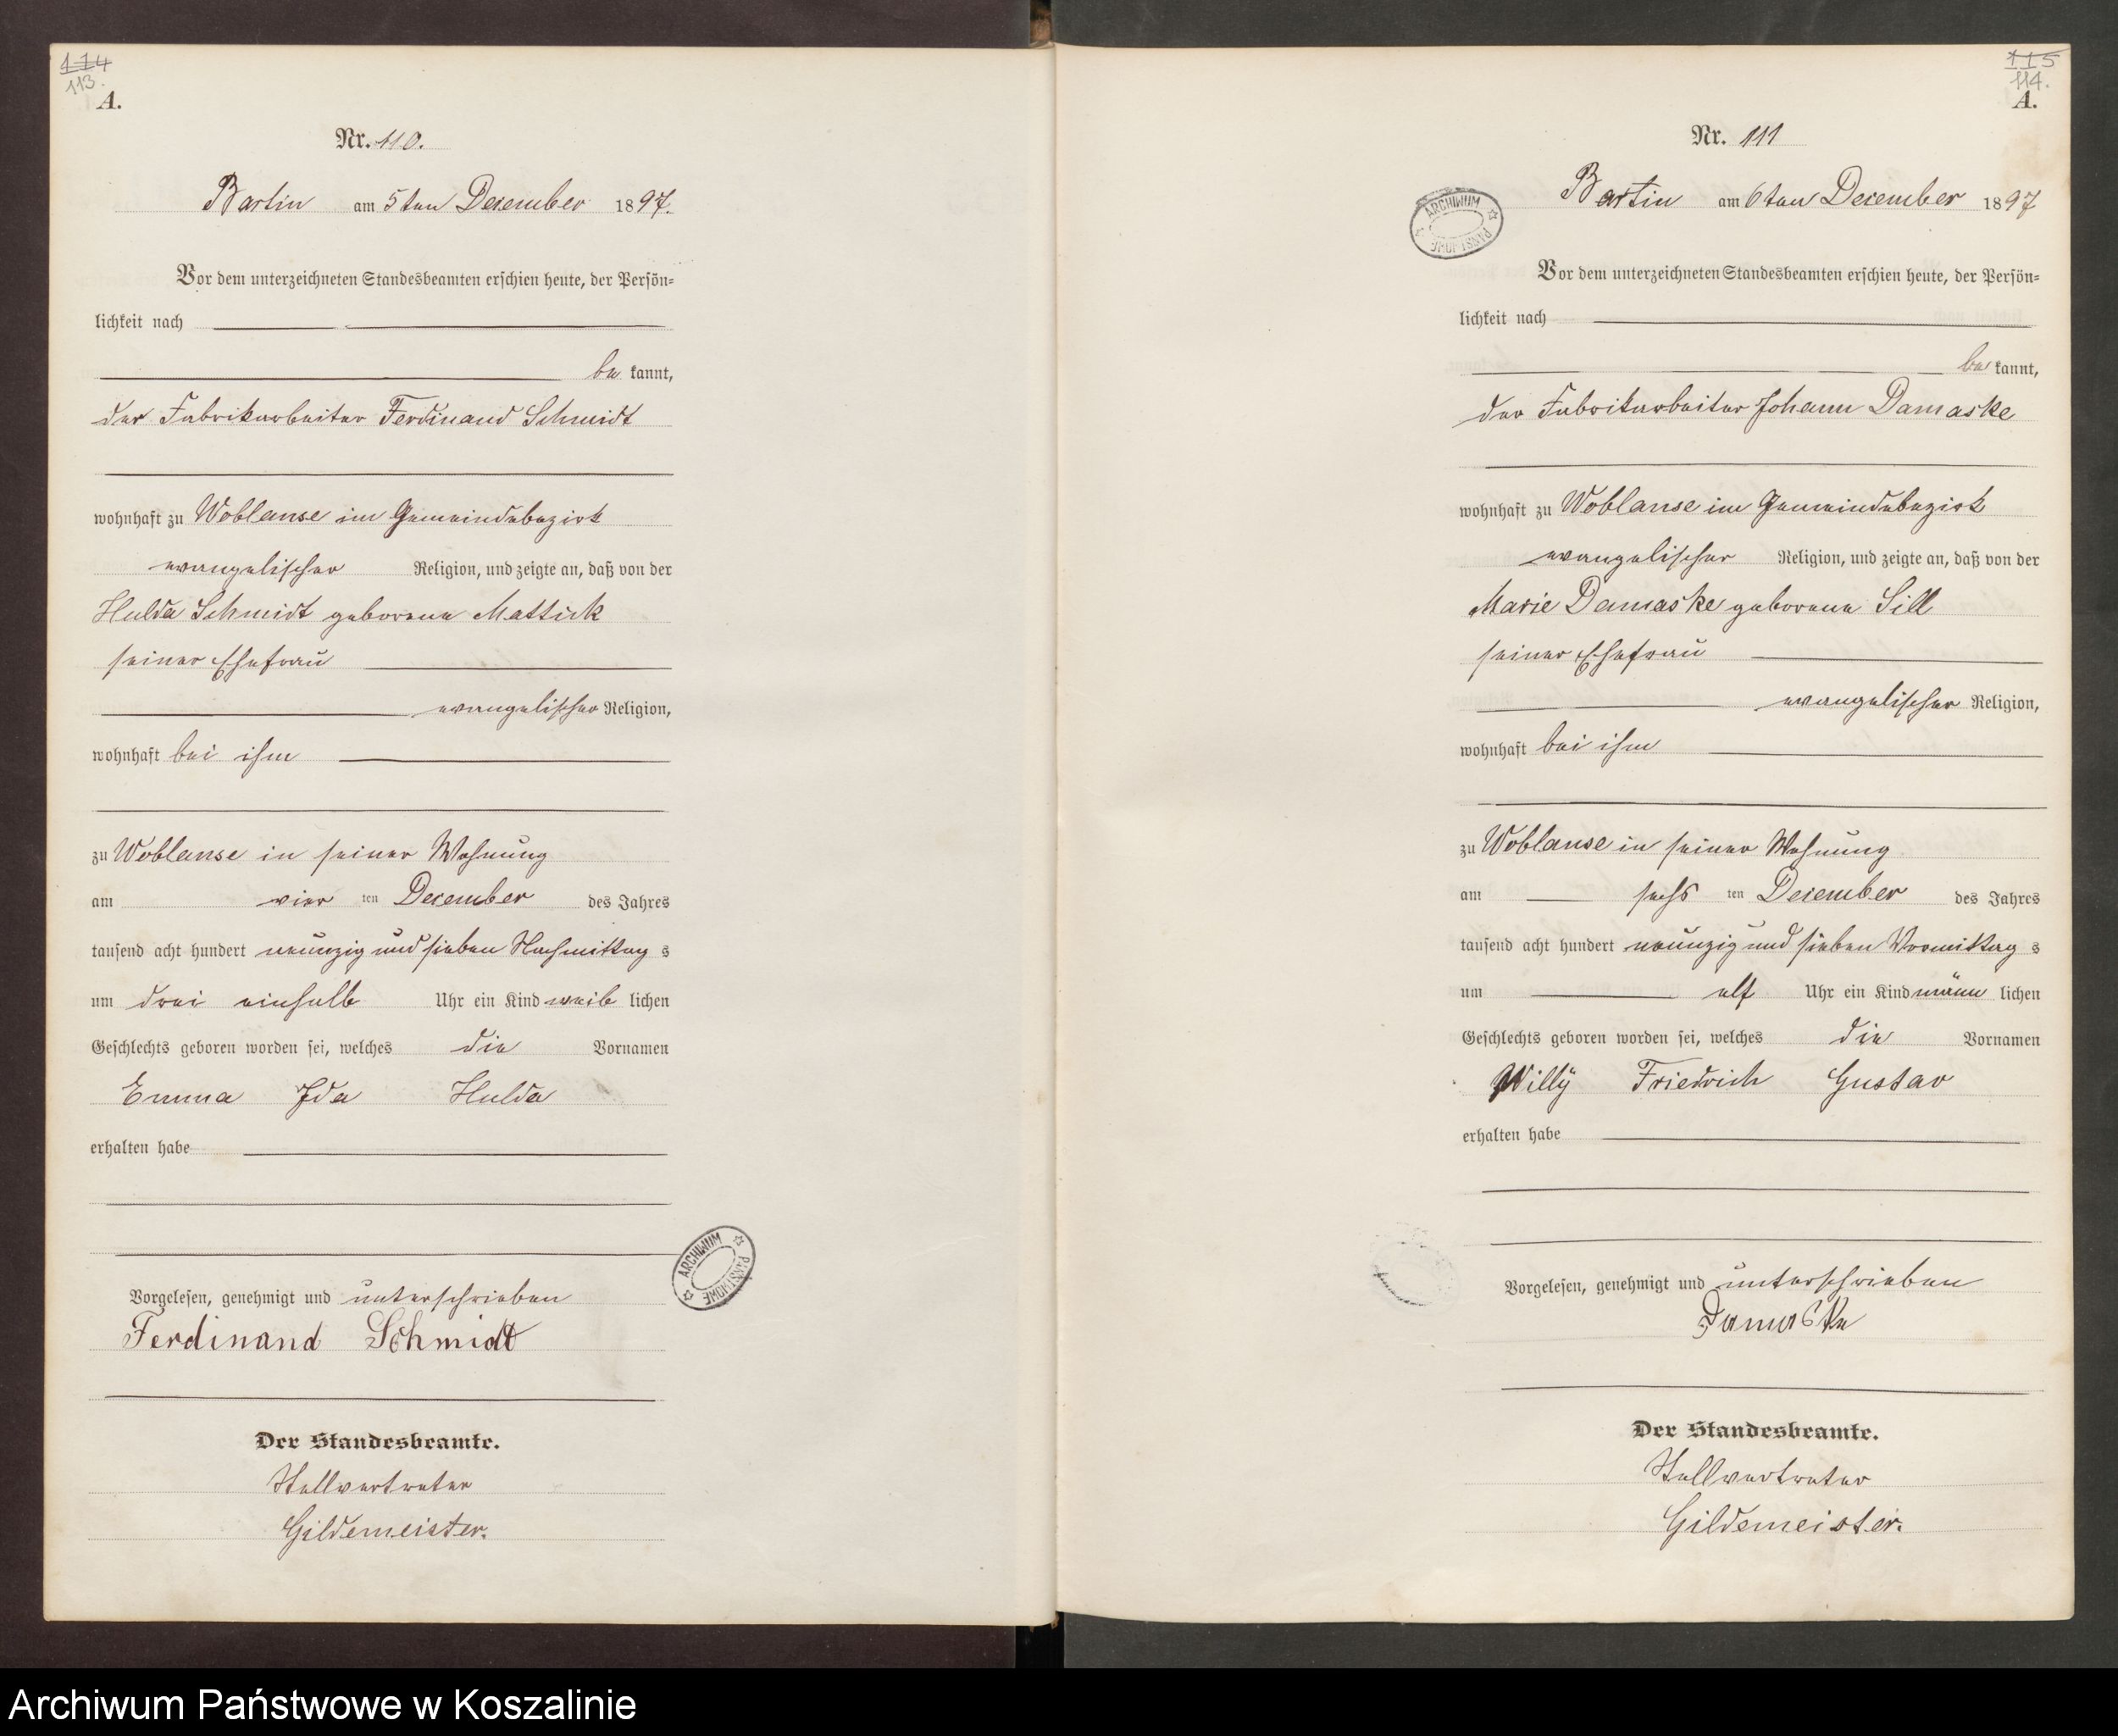 114
113.
A.
Nr. 110.
Bartin am 5ten December 1897.
Vor dem unterzeichneten Standesbeamten erschien heute, der Persön-
lichkeit nach
be kannt,
der Fabrikarbeiter Ferdinand Schmidt
wohnhaft zu Woblanse im Gemeindebezirk
evangelischer Religion, und zeigte an, daß von der
Hulda Schmidt geborene Mattick
seiner Ehefrau
evangelischer Religion,
wohnhaft bei ihm
zu Woblanse in seiner Wohnung
am vier ten December des Jahres
tausend acht hundert neunzig und sieben Nachmittag s
um drei einhalb Uhr ein Kind weib lichen
Geschlechts geboren worden sei, welches die Vornamen
Emma Ida Hulda
erhalten habe
Vorgelesen, genehmigt und unterschrieben
Ferdinand Schmidt
Der Standesbeamte.
Stellvertreter
Gildemeister.
ARCHIWUM PAŃSTWOWE
115
114.
A.
Nr. 111
Bartin am 6ten December 1897
ARCHIWUM PAŃSTWOWE
Vor dem unterzeichneten Standesbeamten erschien heute, der Persön-
lichkeit nach
be kannt,
der Fabrikarbeiter Johann Damaske
wohnhaft zu Woblanse im Gemeindebezirk
evangelischer Religion, und zeigte an, daß von der
Marie Damaske geborene Sill
seiner Ehefrau
evangelischer Religion,
wohnhaft bei ihm
zu Woblanse in seiner Wohnung
am sechs ten December des Jahres
tausend acht hundert neunzig und sieben Vormittag s
um elf Uhr ein Kind männ lichen
Geschlechts geboren worden sei, welches die Vornamen
Willy Friedrich Gustav
erhalten habe
Vorgelesen, genehmigt und unterschrieben
Damaske
Der Standesbeamte.
Stellvertreter
Gildemeister.
Archiwum Państwowe w Koszalinie